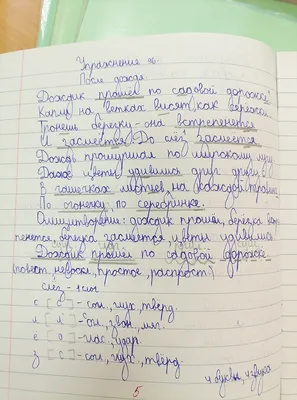 Упражнение 96.
После дождя.
Дождик прошёл по садовой дорожке.
Капли на ветках висят, как серёжки.
Тронешь берёзку - она встрепенётся
И засмеётся. До слёз засмеётся.
Дождь прошуршал по широкому лугу
Даже цветы удивились друг другу
В чашечках листьев, на каждой травинке
По огонёчку, по серебринке.
Олицетворение: дождик прошёл, берёзка встре-
пенется, берёзка засмеётся, цветы удивились
Дождик прошёл по садовой дорожке
(повест., невоскл., простое, распрост.)
слёз - 1 слог
с [с] - согл., глух., тверд.
л [л'] - согл., звон., мяг.
ё [о] - глас., удар.
з [с] - согл., глух., твёрд.
4 буквы, 4 звука
5